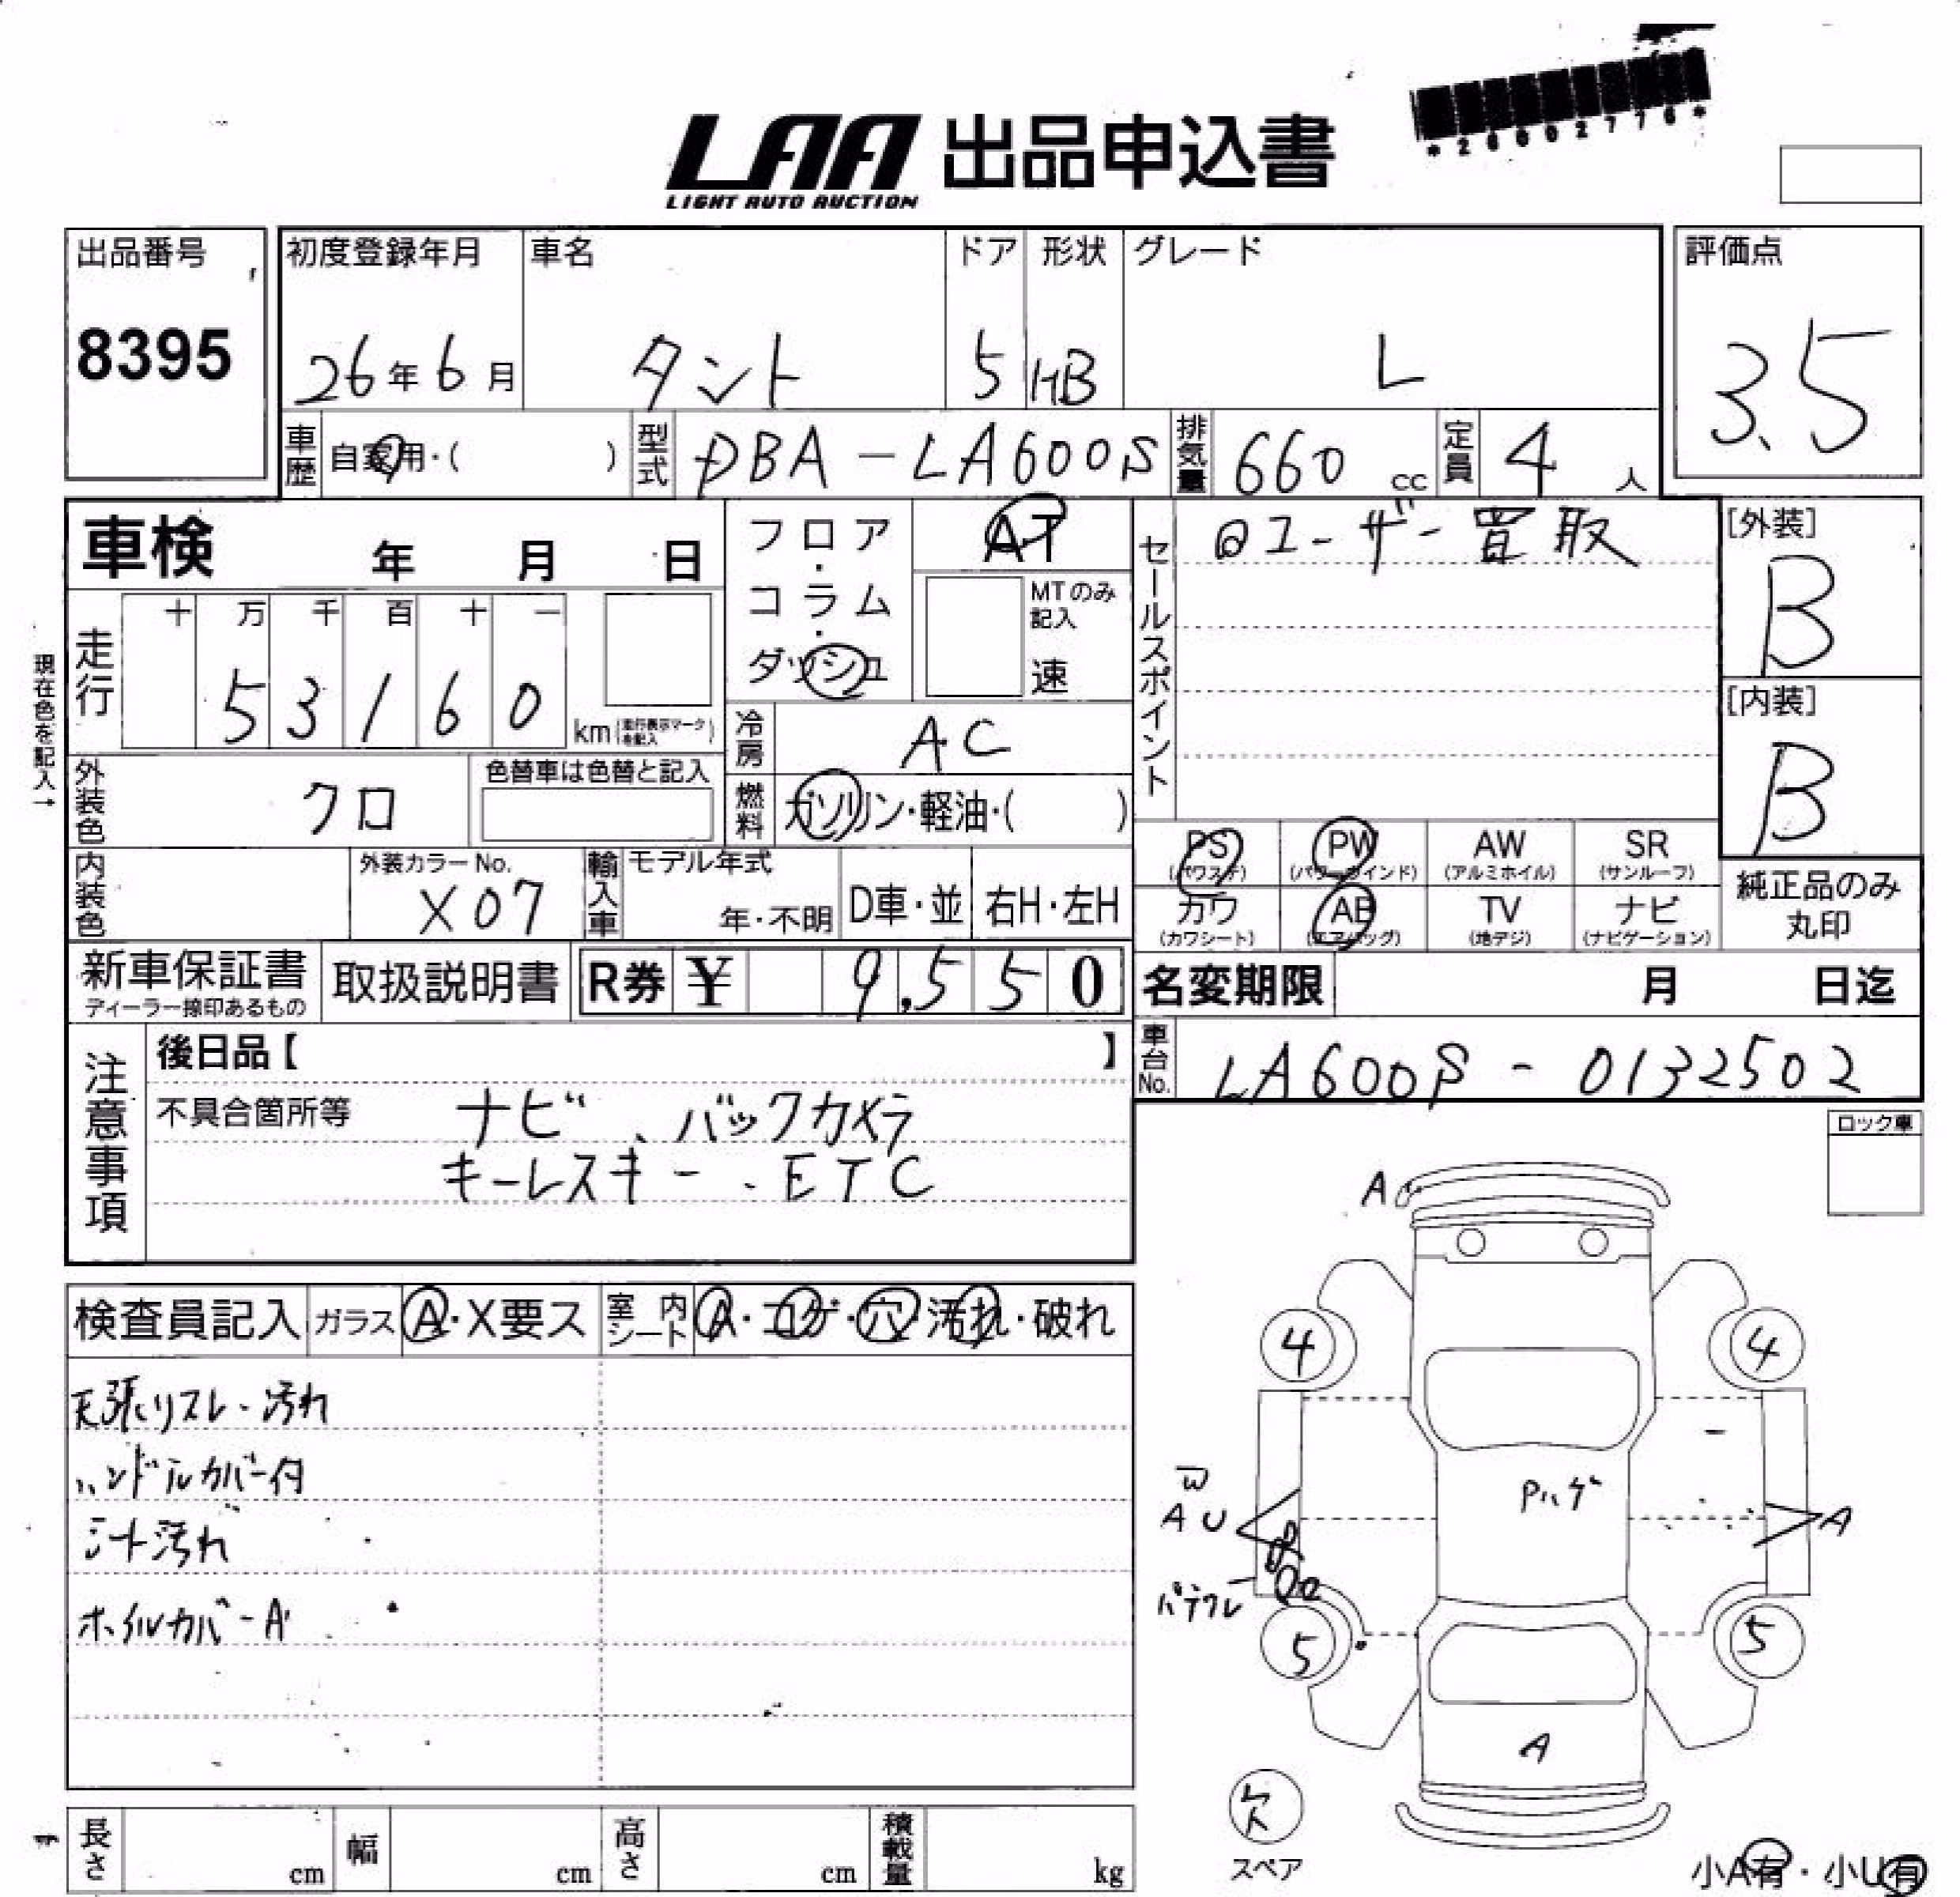 *26002776*
LAA 出品申込書
LIGHT AUTO AUCTION
出品番号 初度登録年月 車名 ドア 形状 グレード 評価点
8395 26年6月 タント 5 HB L 3.5
車歴 自家用・( ) 型式 DBA-LA600S 排気量 660 cc 定員 4 人
車検 年 月 日 フロア・コラム・ダッシュ AT
MTのみ記入 速
セールスポイント @ユーザー買取
[外装] B
現在色を記入→
走行 十 万 千 百 十 一
5 3 1 6 0 km (走行表示マークを記入)
[内装] B
冷房 AC
外装色 クロ 色替車は色替と記入
燃料 ガソリン・軽油・( )
PS (パワステ) PW (パワーウインド) AW (アルミホイル) SR (サンルーフ)
内装色 外装カラーNo. X07 輸入車 モデル年式 年・不明 D車・並 右H・左H
カワ (カワシート) AB (エアバッグ) TV (地デジ) ナビ (ナビゲーション)
純正品のみ丸印
新車保証書 ディーラー捺印あるもの 取扱説明書 R券 ¥ 9,550
名変期限 月 日迄
注意事項 後日品【 】
車台No. LA600S-0132502
不具合箇所等 ナビ、バックカメラ
キーレスキー、ETC
ロック車
検査員記入 ガラス A・X要ス 室内シート A・コゲ・穴・汚れ・破れ
天張リスレ・汚れ
ハンドルカバー付
シート汚れ
ホイルカバーA
A
4 4
Pハゲ
W
AU A
パテワレ
5 5
A
欠
スペア
小A有・小U有
長さ cm 幅 cm 高さ cm 積載量 kg